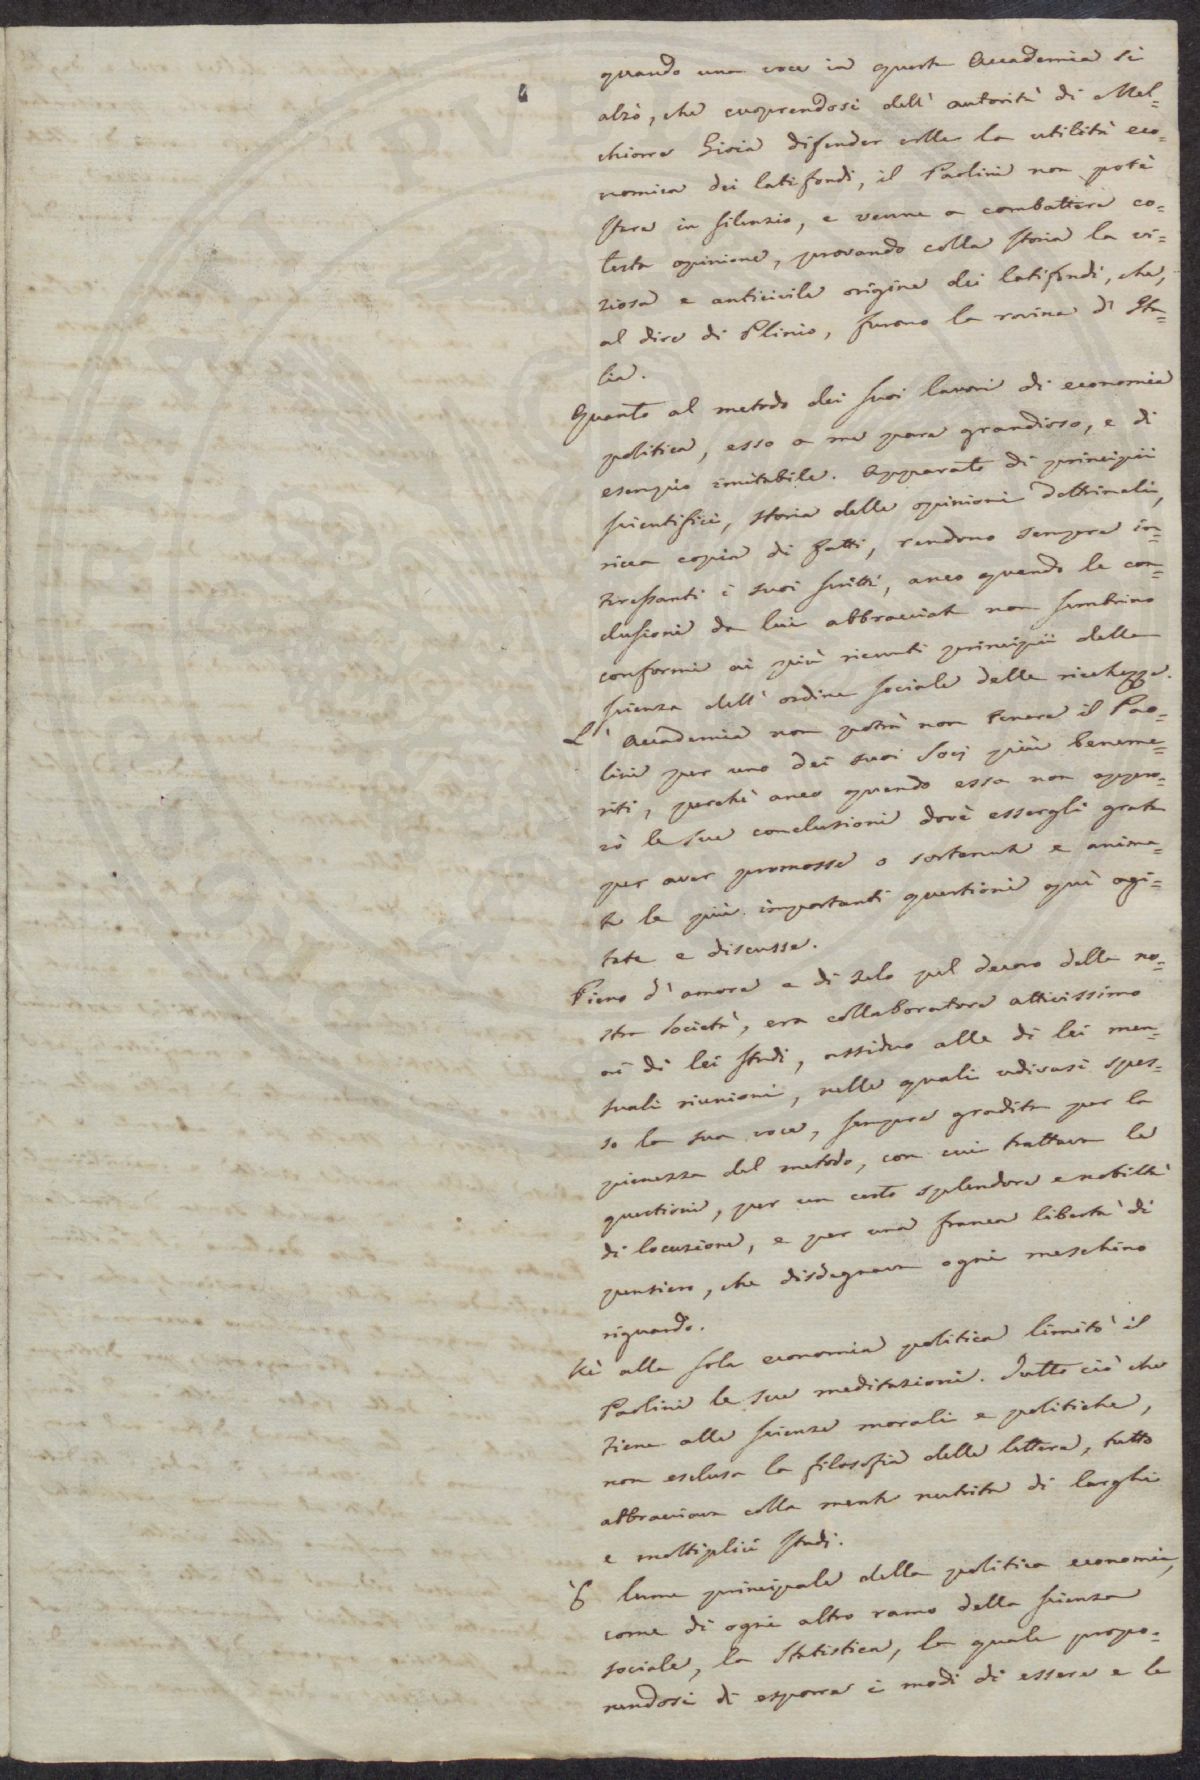 quando una voce in questa Accademia si
alzò, che cuoprendosi dell' autorità di Mel=
chiorre Gioia difender volle la utilità eco=
nomica dei latifondi, il Paolini non potè
stare in silenzio, e venne a combattere co=
testa opinione, provando colla storia la vi=
ziosa e anticivile origine dei latifondi, che,
al dire di Plinio, furono la rovina d' Ita=
lia.
Quanto al metodo dei suoi lavori di economia
politica, esso a me pare grandioso, e di
esempio imitabile. Apparato di principii
scientifici, storia delle opinioni dottrinali,
ricca copia di fatti, rendono sempre in=
teressanti i suoi scritti, anco quando le con=
clusioni da lui abbracciate non sembrino
conformi ai più ricevuti principii della
scienza dell' ordine sociale delle ricchezze.
L' Accademia non potrà non tenere il Pao=
lini per uno dei suoi Socj più beneme=
riti, perchè anco quando essa non appro=
vò le sue conclusioni dovè essergli grata
per aver promosse o sostenute e anima=
te le più importanti questioni quì agi=
tate e discusse.
Pieno d' amore e di zelo pel decoro della no=
stra Società, era collaboratore attivissimo
ai di lei studi, assiduo alle di lei men=
suali riunioni, nelle quali udivasi spes=
so la sua voce, sempre gradita per la
pienezza del metodo, con cui trattava le
questioni, per un certo splendore e nobiltà
di locuzione, e per una franca libertà di
pensiero, che disdegnava ogni meschino
riguardo.
Nè alla sola economia politica limitò il
Paolini le sue meditazioni. Tutto ciò che
tiene alle scienze morali e politiche,
non esclusa la filosofia delle lettere, tutto
abbracciava colla mente nutrita di larghi
e moltiplici studi.
È lume principale della politica economia,
come di ogni altro ramo della scienza
sociale, la Statistica, la quale propo=
nendosi di esporre i modi di essere e le